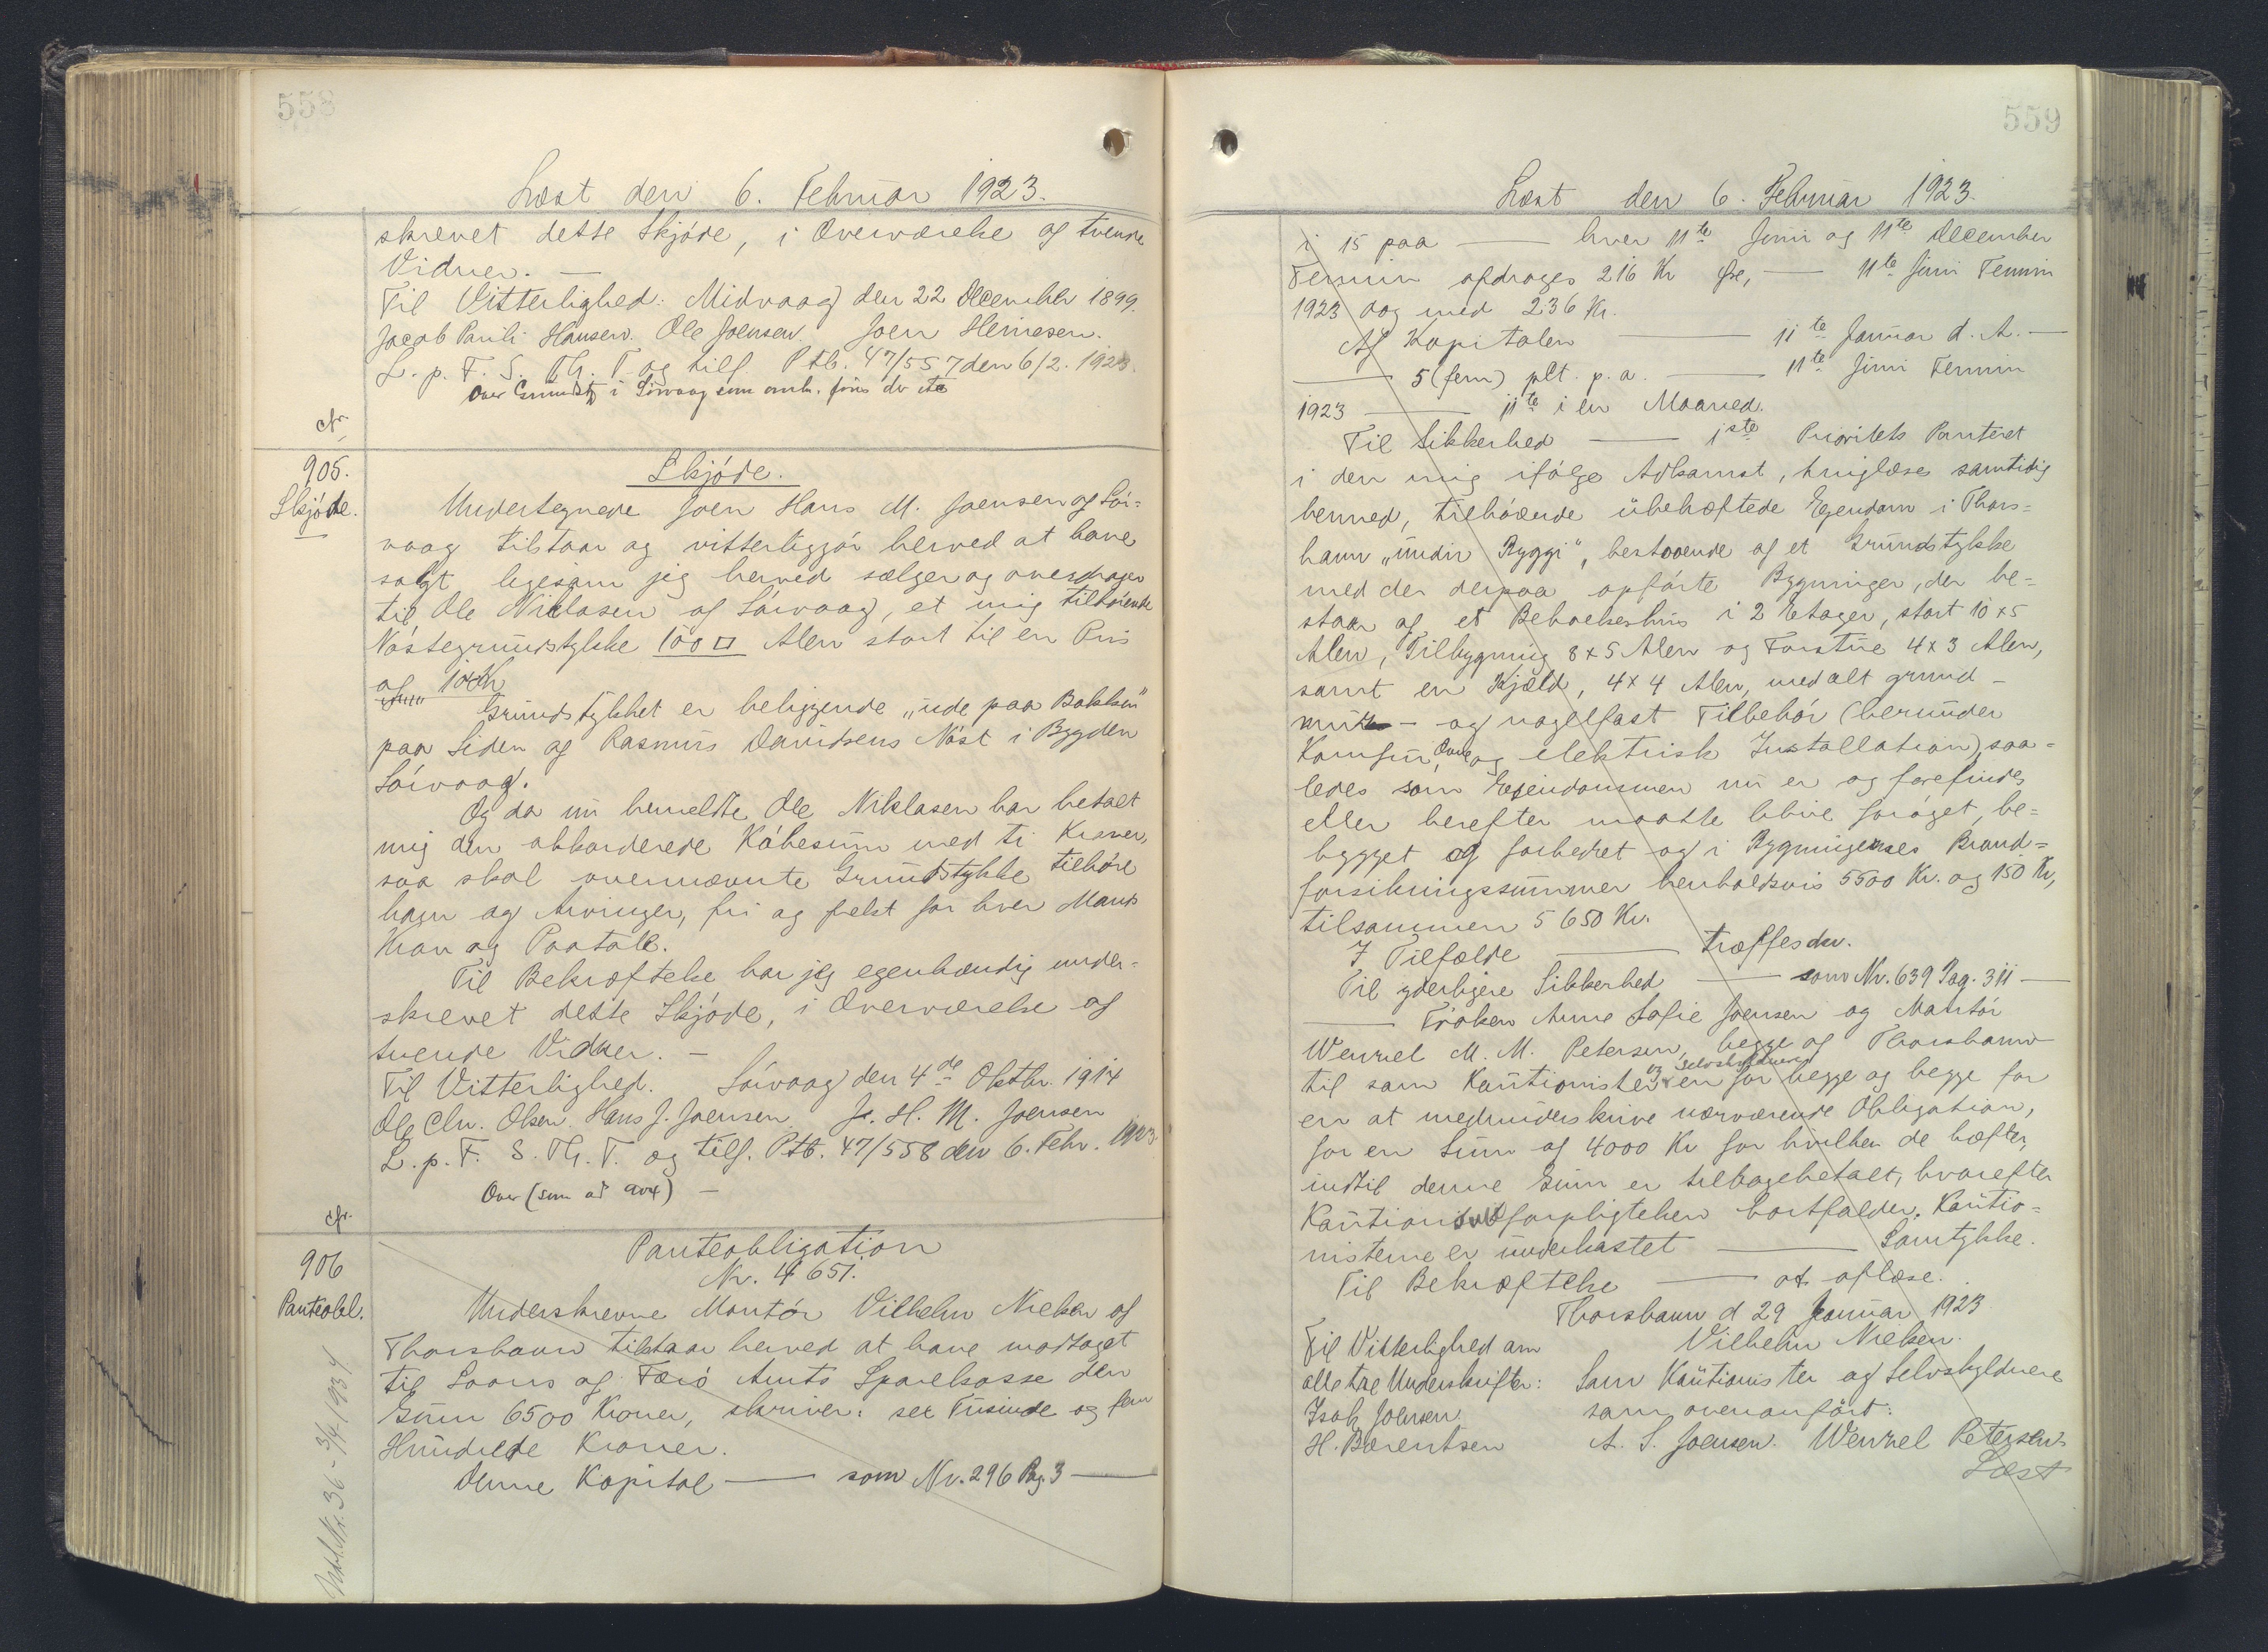 558
Læst den 6. Februar 1923.
skrevet dette Skjöde, i Overværelse af tvende
Vidner. —
Til Vitterlighed: Midvaag den 22 December 1899.
Jacob Pauli Hansen. Ole Joensen. Joen Heinesen.
L. p. F. S. Th. T. og tilf. Ptb. 47/557 den 6/2. 1923.
Over Grundst. i Sörvaag som anh. före
cfr.
905.
Skjöde.
Skjöde.
Undertegnede Joen Hans M. Joensen af Sör-
vaag tilstaar og vitterliggjör herved at have
solgt ligesom jeg herved sælger og overdrager
til Ole Niklasen af Sörvaag, et mig tilhörende
Nöstegrundstykke 100 □ Alen stort til en Pris
af 10 Kr
Grundstykket er beliggende „ude paa Bakken"
paa Siden af Rasmus Davidsens Nöst i Bygden
Sörvaag.
Og da nu bemeldte Ole Niklasen har betalt
mig den akkorderede Köbesum med ti Kroner,
saa skal ovennævnte Grundstykke tilhöre
ham og Arvinger, fri og frelst for hver Mands
Krav og Paatale.
Til Bekræftelse har jeg egenhændig under-
skrevet dette Skjöde, i Overværelse af
tvende Vidner. —
Til Vitterlighed. Sörvaag den 4de Oktbr. 1914
Ole Chr. Olsen. Hans J. Joensen. J. H. M. Joensen
L. p. F. S. Th. T. og tilf. Ptb. 47/558 den 6. Febr. 1923.
Over (som ad 904) —
cfr.
906
Panteobl.
Panteobligation
Nr. 4651.
Underskrevne Montör Vilhelm Nielsen af
Thorshavn tilstaar herved at have modtaget
til Laans af Færö Amts Sparekasse den
Sum 6500 Kroner, skriver: sex Tusinde og fem
Hundrede Kroner.
Denne Kapital — som Nr. 296 Pag. 3 —
Nr. 36 - 3/4 1934
559
Læst den 6. Februar 1923.
i 15 paa — hver 11te Juni og 11te December
Termin afdrages 216 Kr Öre, — 11te Juni Termin
1923 dog med 236 Kr.
Af Kapitalen — 11te Januar d. A. —
— 5 (fem) pCt. p. a. — 11te Juni Termin
1923 — 11te i en Maaned.
Til Sikkerhed — 1ste Prioritets Panteret
i den mig ifölge Adkomst, tinglæst samtidig
hermed, tilhörende übehæftede Ejendom i Thors-
havn „undir Ryggi", bestaaende af et Grundstykke
med der derpaa opförte Bygninger, der be-
staar af et Beboelseshus i 2 Etager, stort 10 x 5
Alen, Tilbygning 8 x 5 Alen og Forstue 4 x 3 Alen,
samt en Kjæld, 4 x 4 Alen, med alt grund-
mur- og nagelfast Tilbehör (herunder
Komfur, Ovne og elektrisk Installation), saa-
ledes som Ejendommen nu er og forefindes
eller herefter maatte blive foröget, be-
bygget og forbedret og i Bygningernes Brand-
forsikringssummer henholdsvis 5500 Kr. og 150 Kr,
tilsammen 5650 Kr.
I Tilfælde — træffes der.
Til yderligere Sikkerhed — som Nr. 639 Pag. 311 —
— Fröken Anne Sofie Joensen og Montör
Wenzel M. M. Petersen, begge af Thorshavn
til som Kautionister og Selvskyldnere en for begge og begge for
en at medunderskrive nærværende Obligation,
for en Sum af 4000 Kr for hvilken de hæfter,
indtil denne Sum er tilbagebetalt, hvorefter
Kautionsforpligtelsen bortfalder. Kautio-
nisterne er underkastet — Samtykke.
Til Bekræftelse — at aflæse.
Thorshavn d 29 Januar 1923
Vilhelm Nielsen.
Til Vitterlighed om
alle tre Underskrifter:
Isak Joensen
H. Berentsen
Som Kautionister og Selvskyldnere
som ovenanfört:
A. S. Joensen. Wenzel Petersen
Læst